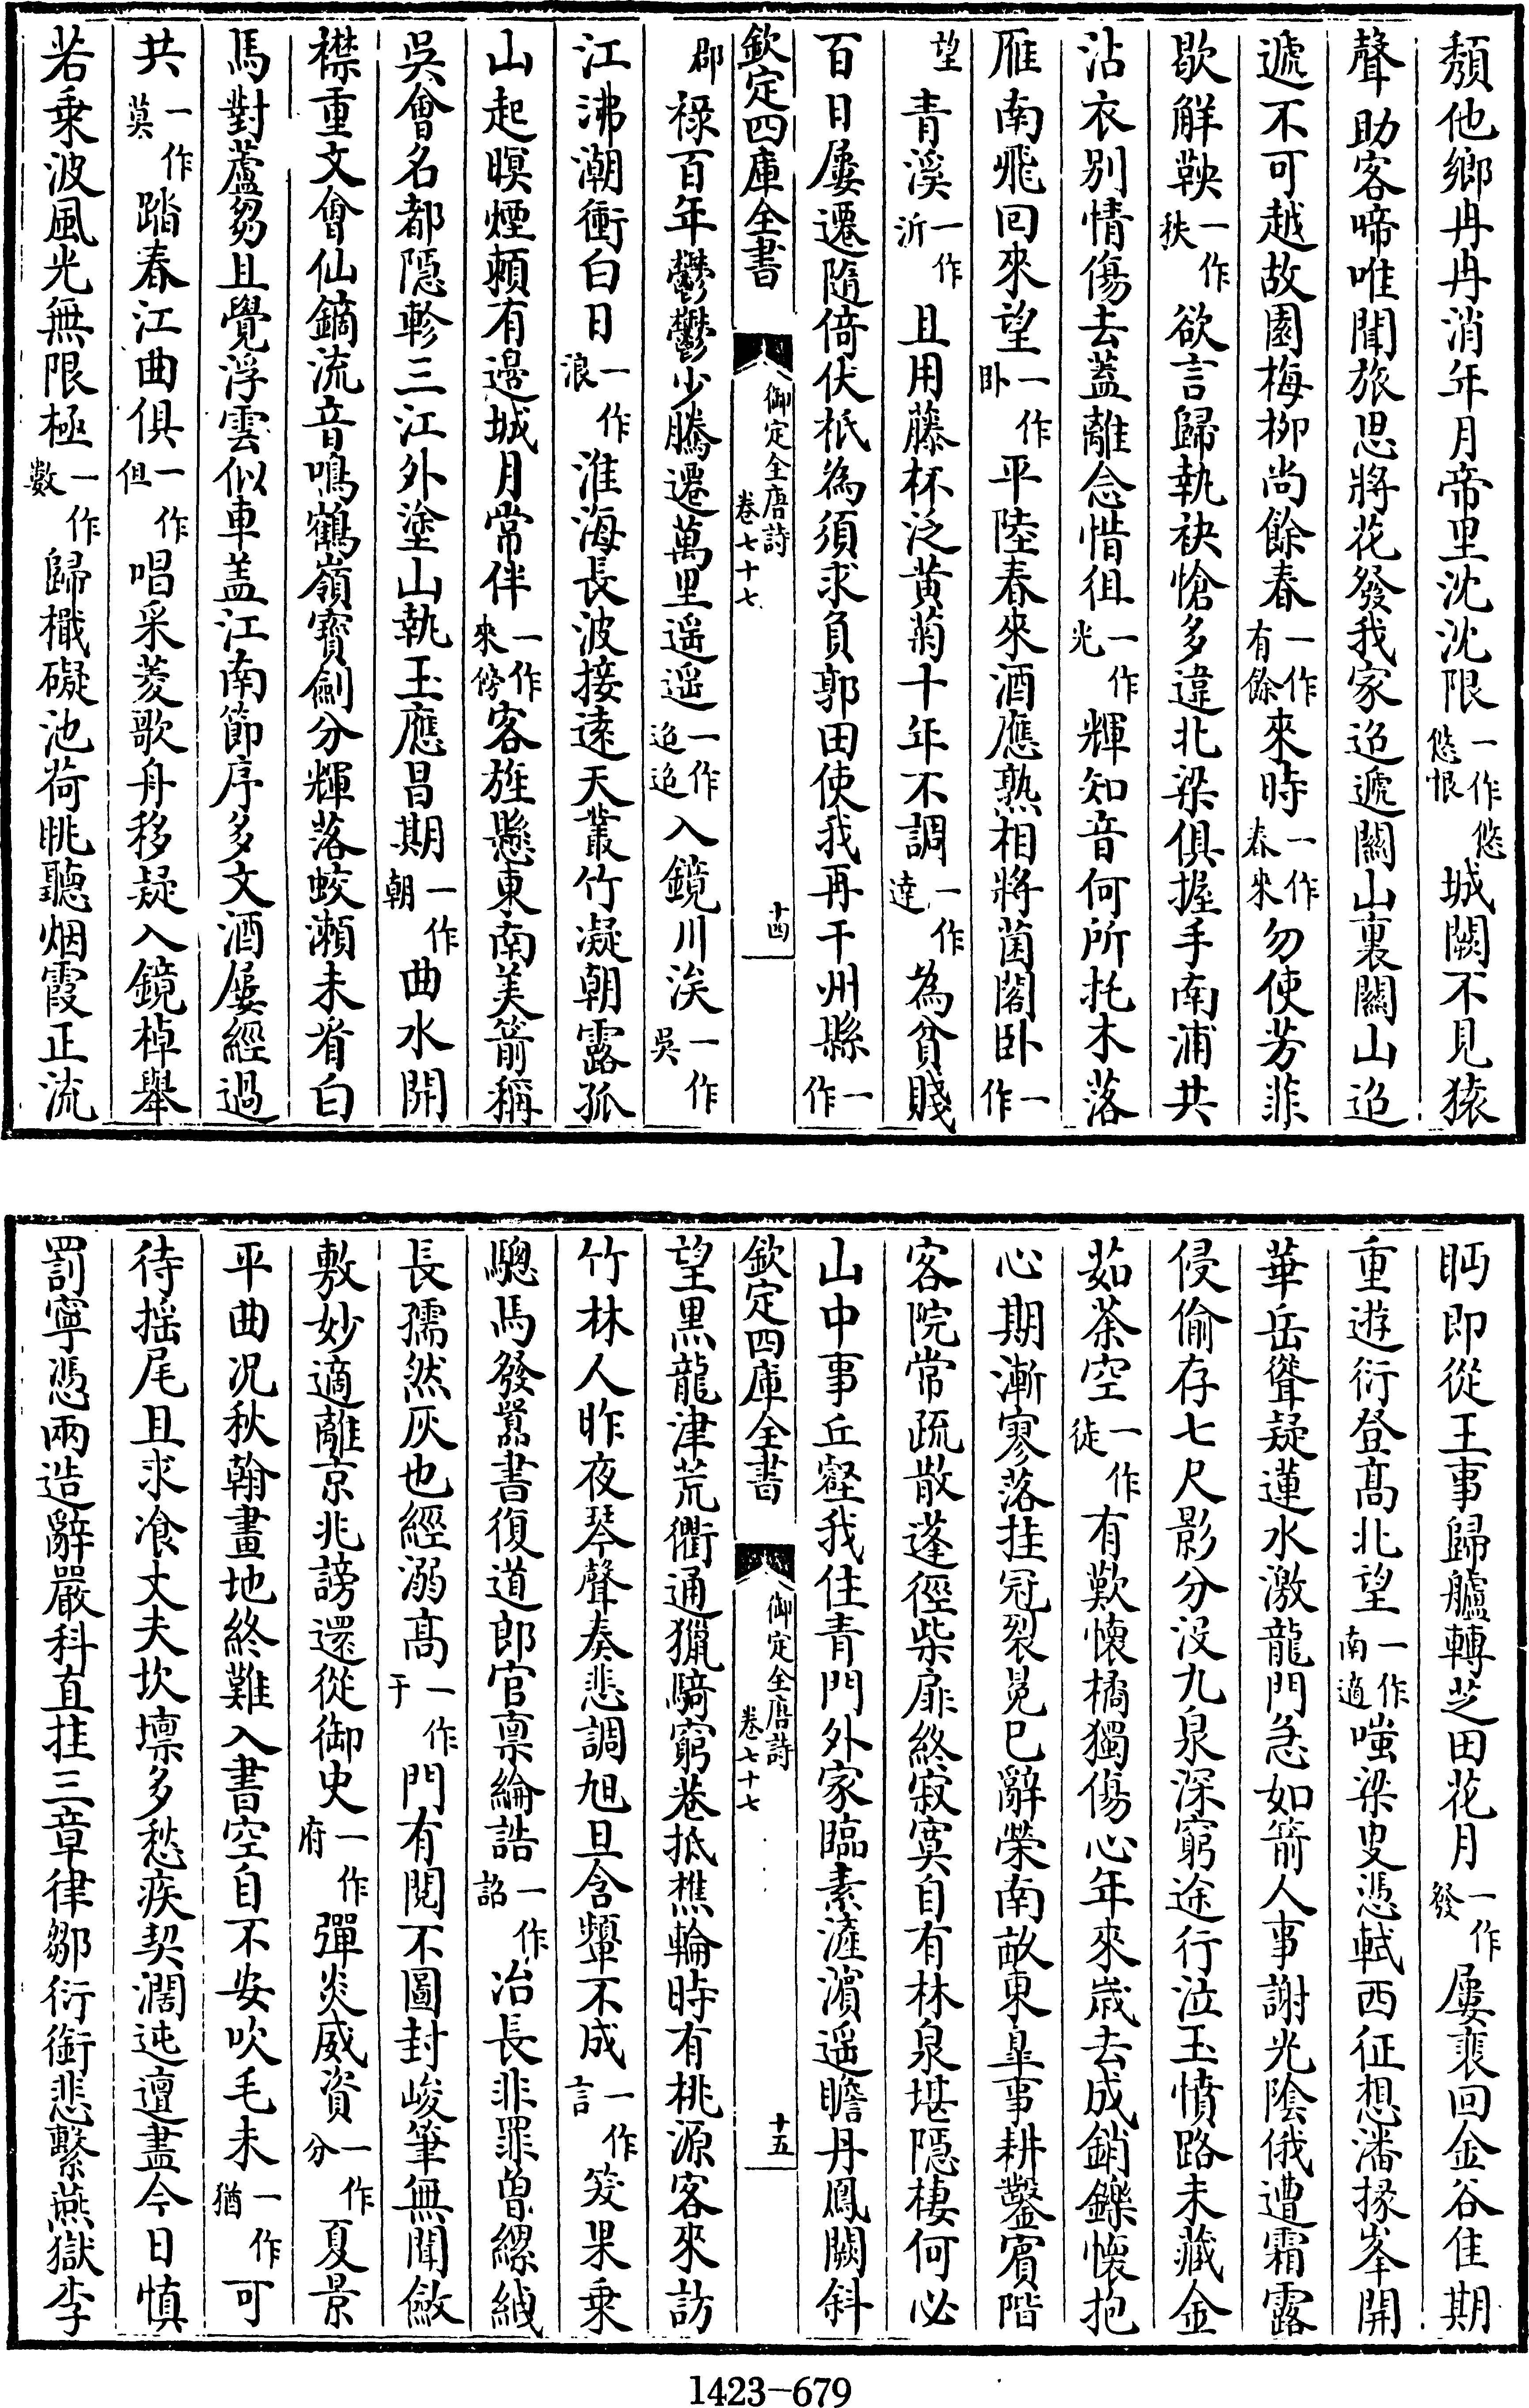 頽他鄉冉冉消年月帝里沈沈限一作悠悠恨城闕不見猿
聲助客啼唯聞旅思將花發我家迢遞關山裏關山迢
遞不可越故園梅柳尚餘春一作有餘來時一作春來勿使芳菲
歇解鞅一作秧欲言歸執袂愴多違北梁俱握手南浦共
沾衣别情傷去蓋離念惜徂一作光輝知音何所托木落
雁南飛回來望一作卧平陸春來酒應熟相將菌閣卧一作
望青溪一作沂且用藤杯泛黃菊十年不調一作達為貧賤
百日屢遷隨倚伏祇為須求負郭田使我再干州縣一作
欽定四庫全書
御定全唐詩
卷七十七
十四
郡禄百年鬱鬱少騰遷萬里遥遥一作迢迢入鏡川涘一作吳
江沸潮衝白日一作浪淮海長波接遠天叢竹凝朝露孤
山起暝煙賴有邊城月常伴一作來傍客旌懸東南美箭稱
吳會名都隱軫三江外塗山執玉應昌期一作朝曲水開
襟重文會仙鏑流音鳴鶴嶺寶劍分輝落蛟瀬未看白
馬對蘆芻且覺浮雲似車盖江南節序多文酒屢經過
共一作莫踏春江曲俱一作但唱采菱歌舟移疑入鏡棹舉
若乗波風光無限極一作數歸檝礙池荷眺聽烟霞正流
眄即從王事歸艫轉芝田花月一作發屢裵回金谷佳期
重遊衍登髙北望一作南適嗤梁叟憑軾西征想潘掾峯開
華岳聳疑蓮水激龍門急如箭人事謝光陰俄遭霜露
侵偷存七尺影分没九泉深窮途行泣玉憤路未藏金
茹荼空一作徒有歎懷橘獨傷心年來嵗去成銷鑠懷抱
心期漸寥落挂冠裂冕已辭榮南畝東臯事耕鑿賓階
客院常疏散蓬徑柴扉終寂寞自有林泉堪隱棲何必
山中事丘壑我住青門外家臨素滻濵遥瞻丹鳳闕斜
欽定四庫全書
御定全唐詩
卷七十七
十五
望黑龍津荒衢通獵騎窮巷抵樵輪時有桃源客來訪
竹林人昨夜琴聲奏悲調旭旦含顰不成一作言笑果乗
驄馬發囂書復道郎官禀綸誥一作詔冶長非罪曽縲絏
長孺然灰也經溺髙一作于門有閱不圖封峻筆無聞斂
敷妙適離京兆謗還從御史一作府彈炎威資一作分夏景
平曲况秋翰畫地終難入書空自不安吹毛未一作猶可
待揺尾且求飡丈夫坎壈多愁疾契濶迍邅盡今日慎
罰寧憑兩造辭嚴科直挂三章律鄒衍銜悲繫燕獄李
1423-679